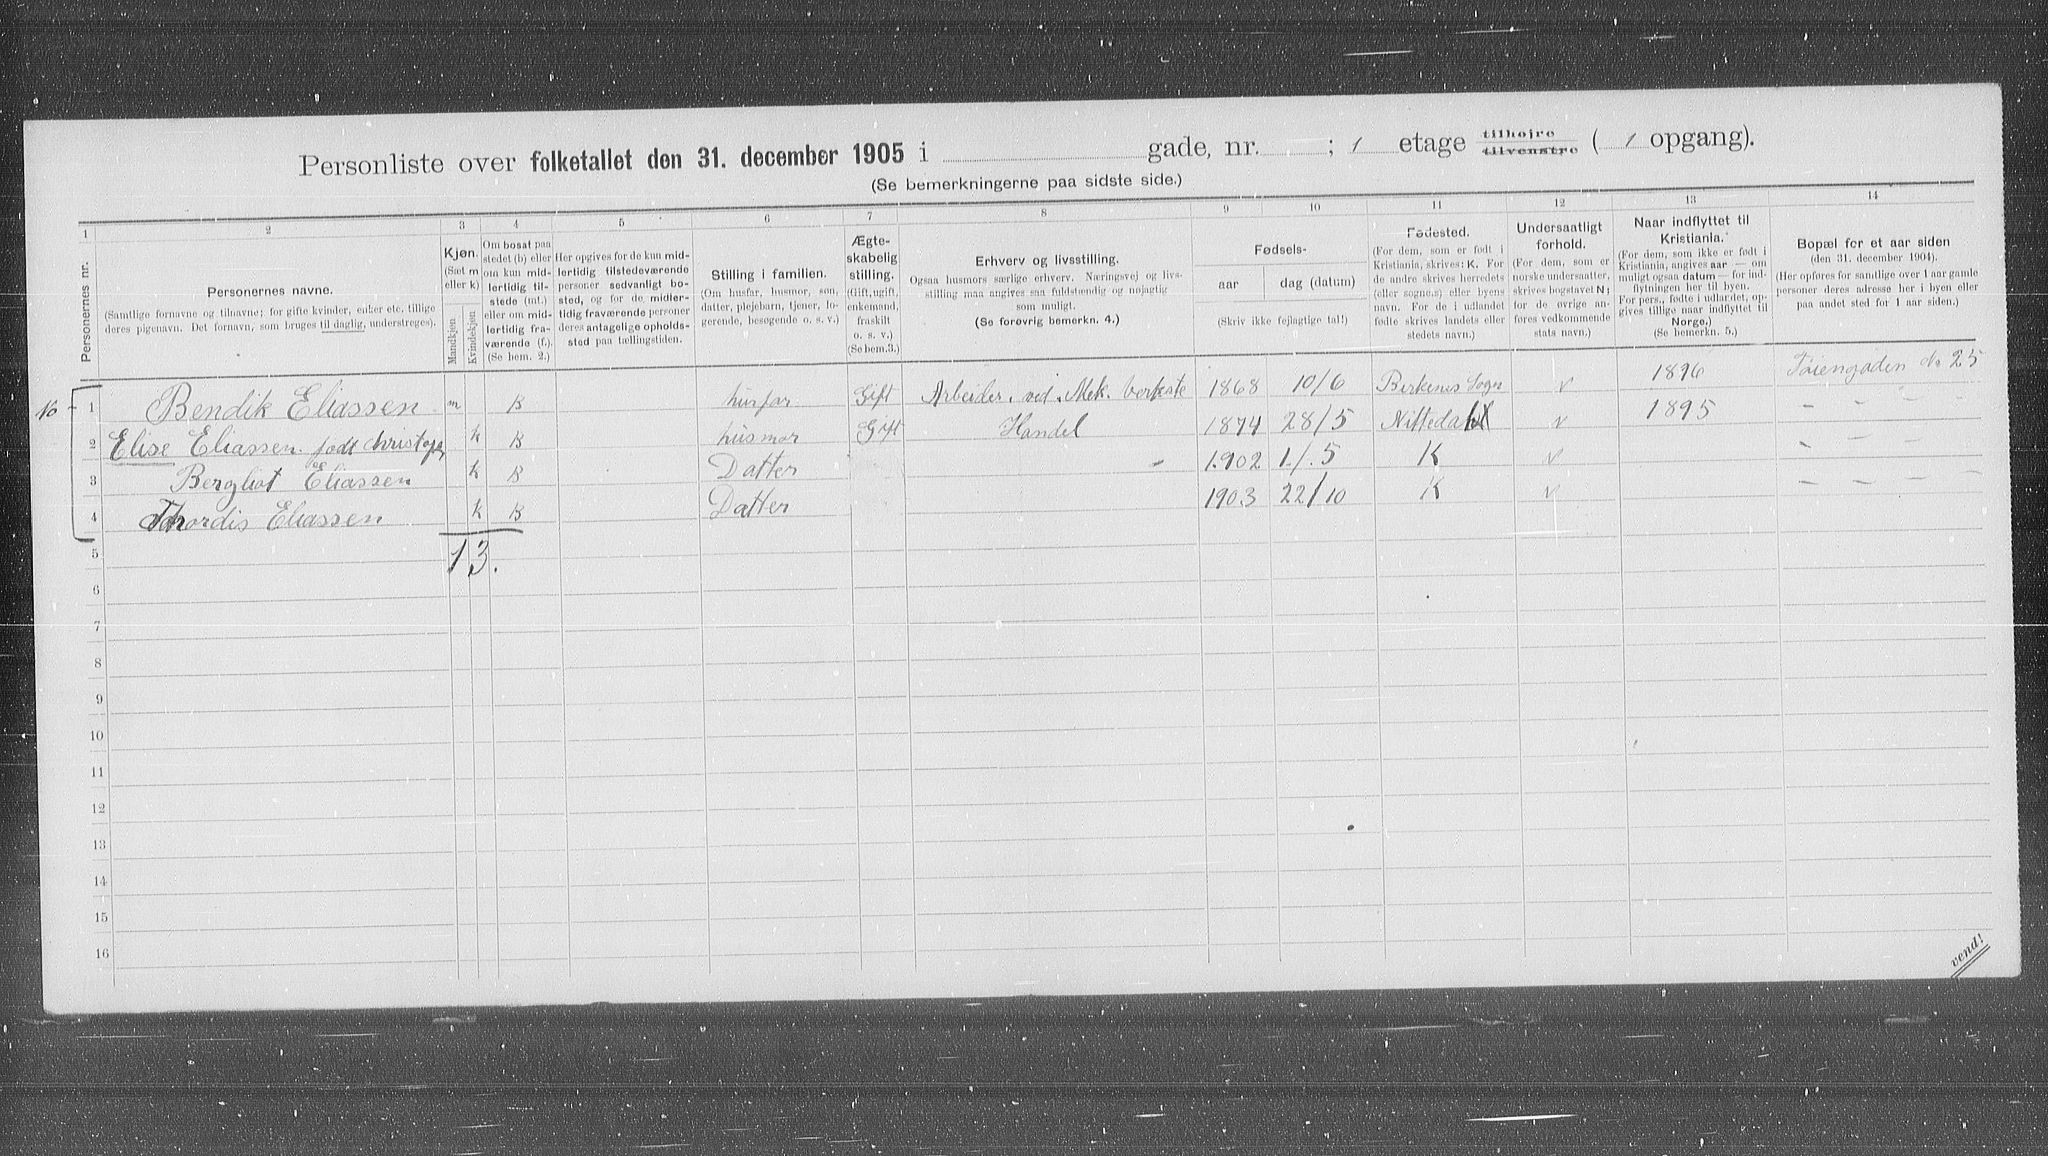 Personliste over folketallet den 31. december 1905 i gade, nr. ; 1 etage tilhøjre tilvenstre ( 1 opgang).
(Se bemerkningerne paa sidste side.)
1 2 3 4 5 6 7 8 9 10 11 12 13 14
Personernes nr.
Personernes navne.
(Samtlige fornavne og tilnavne; for gifte kvinder, enker etc. tillige
deres pigenavn. Det fornavn, som bruges til daglig, understreges).
Kjøn.
(Sæt m
eller k)
Mandkjøn
Kvindekjøn
Om bosat paa
stedet (b) eller
om kun mid-
lertidig til-
stede (mt.)
eller om mid-
lertidig fra-
værende (f.).
(Se bem. 2.)
Her opgives for de kun mid-
lertidig tilstedeværende
personer sedvanligt bo-
sted, og for de midler-
tidig fraværende personer
deres antagelige opholds-
sted paa tællingstiden.
Stilling i familien.
(Om husfar, husmor, søn,
datter, plejebarn, tjener, lo-
gerende, besøgende o. s. v.)
Ægte-
skabelig
stilling.
(Gift, ugift,
enkemand,
fraskilt
o. s. v.)
(Se bem. 3.)
Erhverv og livsstilling.
Ogsaa husmors særlige erhverv. Næringsvej og livs-
stilling maa angives saa fuldstændig og nøjagtig
som muligt.
(Se forøvrig bemerkn. 4.)
Fødsels-
aar
dag (datum)
(Skriv ikke fejlagtige tal!)
Fødested.
(For dem, som er født i
Kristiania, skrives: K. For
de andre skrives herredets
(eller sognets) eller byens
navn. For de i udlandet
fødte skrives landets eller
stedets navn.)
Undersaatligt
forhold.
(For dem, som er
norske undersaatter,
skrives bogstavet N;
for de øvrige an-
føres vedkommende
stats navn.)
Naar indflyttet til
Kristiania.
(For dem, som ikke er født i
Kristiania, angives aar — om
muligt ogsaa datum — for ind-
flytningen her til byen.
For pers., fødte i udlandet, op-
gives tillige naar indflyttet til
Norge.)
(Se bemerkn. 5.)
Bopæl for et aar siden
(den 31. december 1904).
(Her opføres for samtlige over 1 aar gamle
personer deres adresse her i byen eller
paa andet sted for 1 aar siden.)
1 Bendik Eliassen m B husfar Gift Arbeider ved Mek. 1868 10/6 Birkenes Sogn 1896 Tøiengaden No 25
2 Elise Eliassen født k B husmor Gift Handel 1874 28/5 Nittedal 1895 - - -
3 Bergliot Eliassen k B Datter - 1902 1/5 K - - -
4 Thordis Eliassen k B Datter 1903 22/10 K - - -
5 1 3.
6
7
8
9
10
11
12
13
14
15
16
vend!